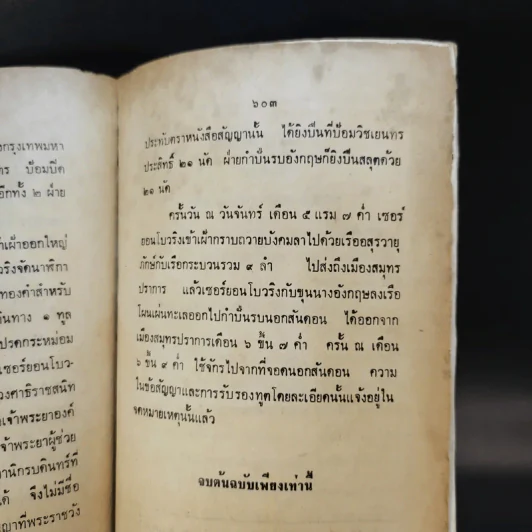 งกรุงเทพมหา
ทร ป้อมปัด
อีกทั้ง ๒ ฝ่าย
าเฝ้าออกใหญ่
วริงจัดนาฬิกา
ทองคำสำหรับ
ดินทาง ๑ ทูล
ปรดกระหม่อม
เซอร์ยอนโบว-
วงศาธิราชสนิท
จ้าพระยาองค์
จ้าพระยาผู้ช่วย
านิกรบดินทร์ที่
ด้ จึงไม่มีชื่อ
ญาที่พระราชวัง
๖๐๓
ประทับตราหนังสือสัญญานั้น ได้ยิงปืนที่ป้อมวิชเยนทร
ประสิทธิ์ ๒๑ นัด ฝ่ายกำปั่นรบอังกฤษก็ยิงปืนสลุตด้วย
๒๑ นัด
ครั้นวัน ณ วันจันทร์ เดือน ๕ แรม ๗ ค่ำ เซอร์
ยอนโบวริงเข้าเฝ้ากราบถวายบังคมลาไปด้วยเรืออสุรวายุ
ภักษ์กับเรือกระบวนรวม ๙ ลำ ไปส่งถึงเมืองสมุทร
ปราการ แล้วเซอร์ยอนโบวริงกับขุนนางอังกฤษลงเรือ
โผนเผ่นทะเลออกไปกำปั่นรบนอกสันดอน ได้ออกจาก
เมืองสมุทรปราการเดือน ๖ ขึ้น ๗ ค่ำ ครั้น ณ เดือน
๖ ขึ้น ๙ ค่ำ ใช้จักรไปจากที่จอดนอกสันดอน ความ
ในข้อสัญญาและการรับรองทูตโดยละเอียดนั้นแจ้งอยู่ใน
จดหมายเหตุนั้นแล้ว
จบต้นฉบับเพียงเท่านี้